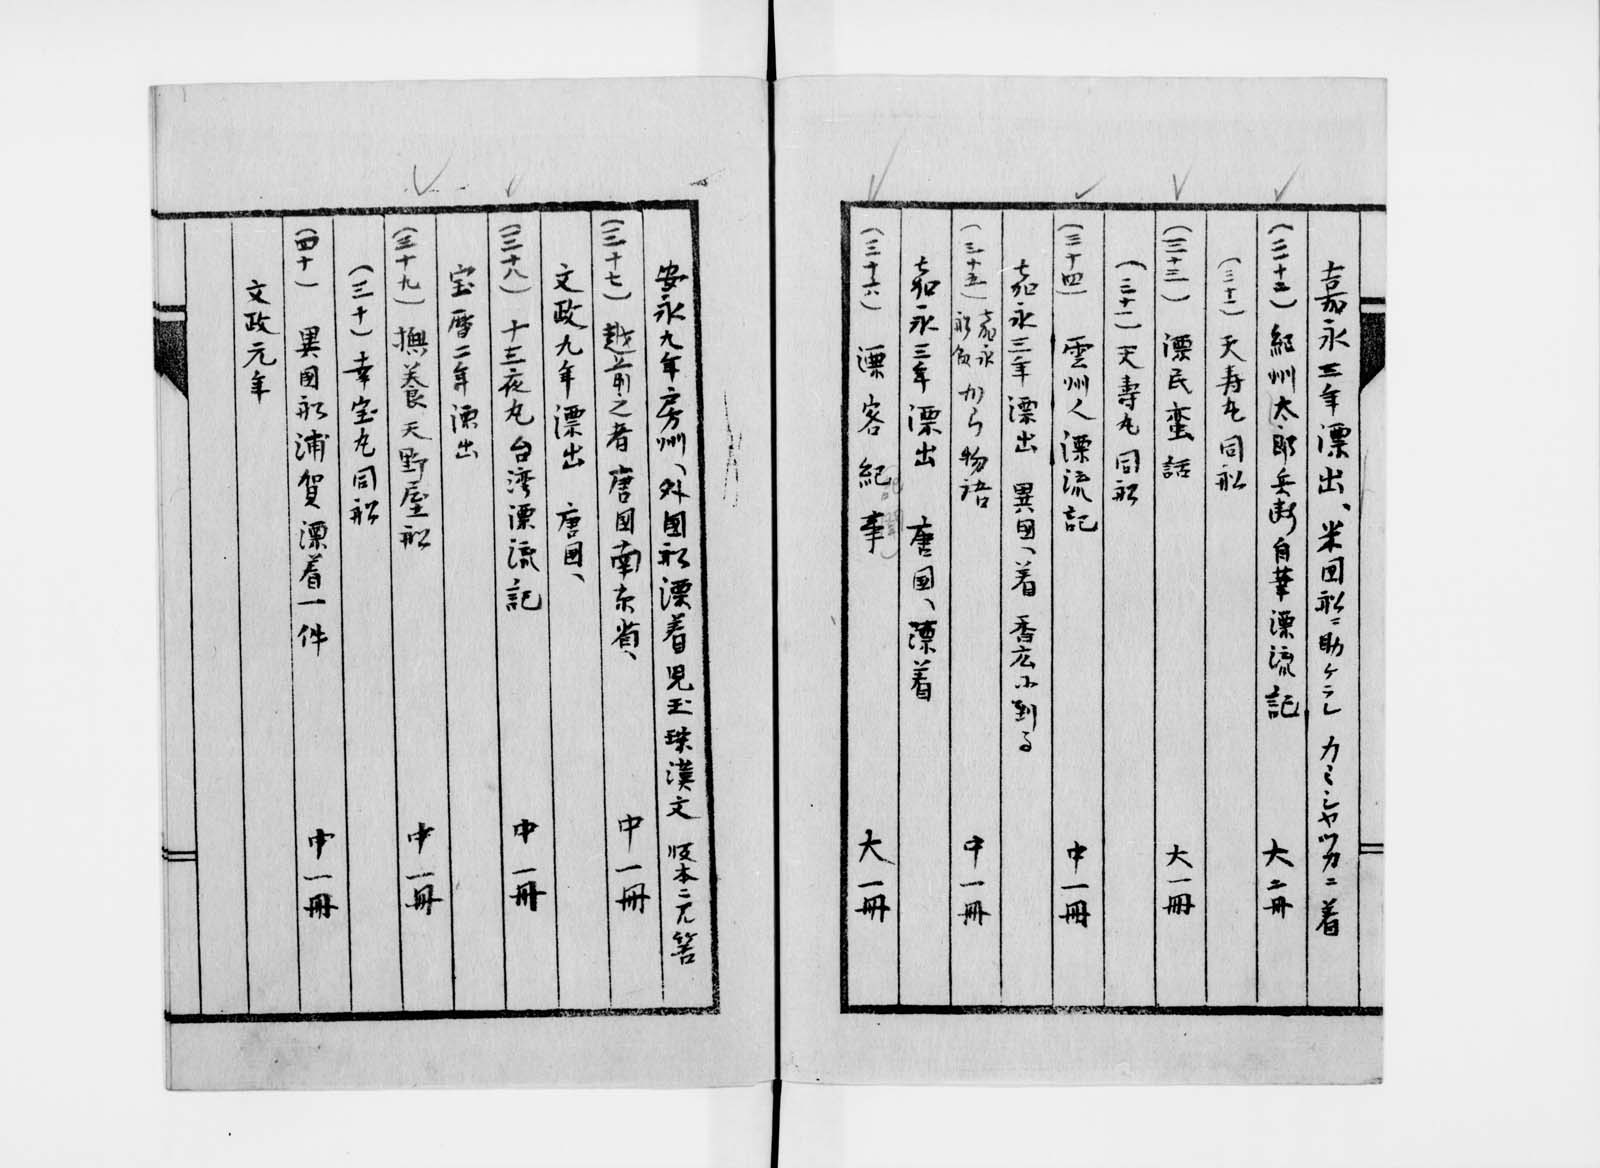 嘉永三年漂出、米国船ニ助ケラレ カミシャツカニ着
(二十五) 紀州太郎兵衛自筆漂流記 大二冊
(三十二) 天寿丸同船
(三十三) 漂民蛮話 大一冊
(三十二) 天壽丸同船
(三十四) 雲州人漂流記 中一冊
嘉永三年漂出 異国、着 香広小到る
(三十五) 嘉永 から物語 中一冊
嘉永三年漂出 唐国、漂着
(三十六) 漂客紀事 大一冊
安永九年房州、外国船漂着児玉琮漢文 版本ニ元
(三十七) 越前之者唐国南京省、 中一冊
文政九年漂出 唐国、
(三十八) 十三夜丸台湾漂流記 中一冊
宝暦二年漂出
(三十九) 撫養天野屋船 中一冊
(三十) 幸宝丸同船
(四十) 異国船浦賀漂着一件 中一冊
文政元年